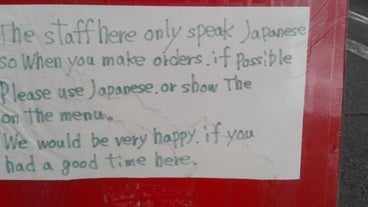 The staff here only speak Japanese
so When you make orders. if possible
Please use Japanese. or show The
on the menu.
We would be very happy. if you
had a good time here.